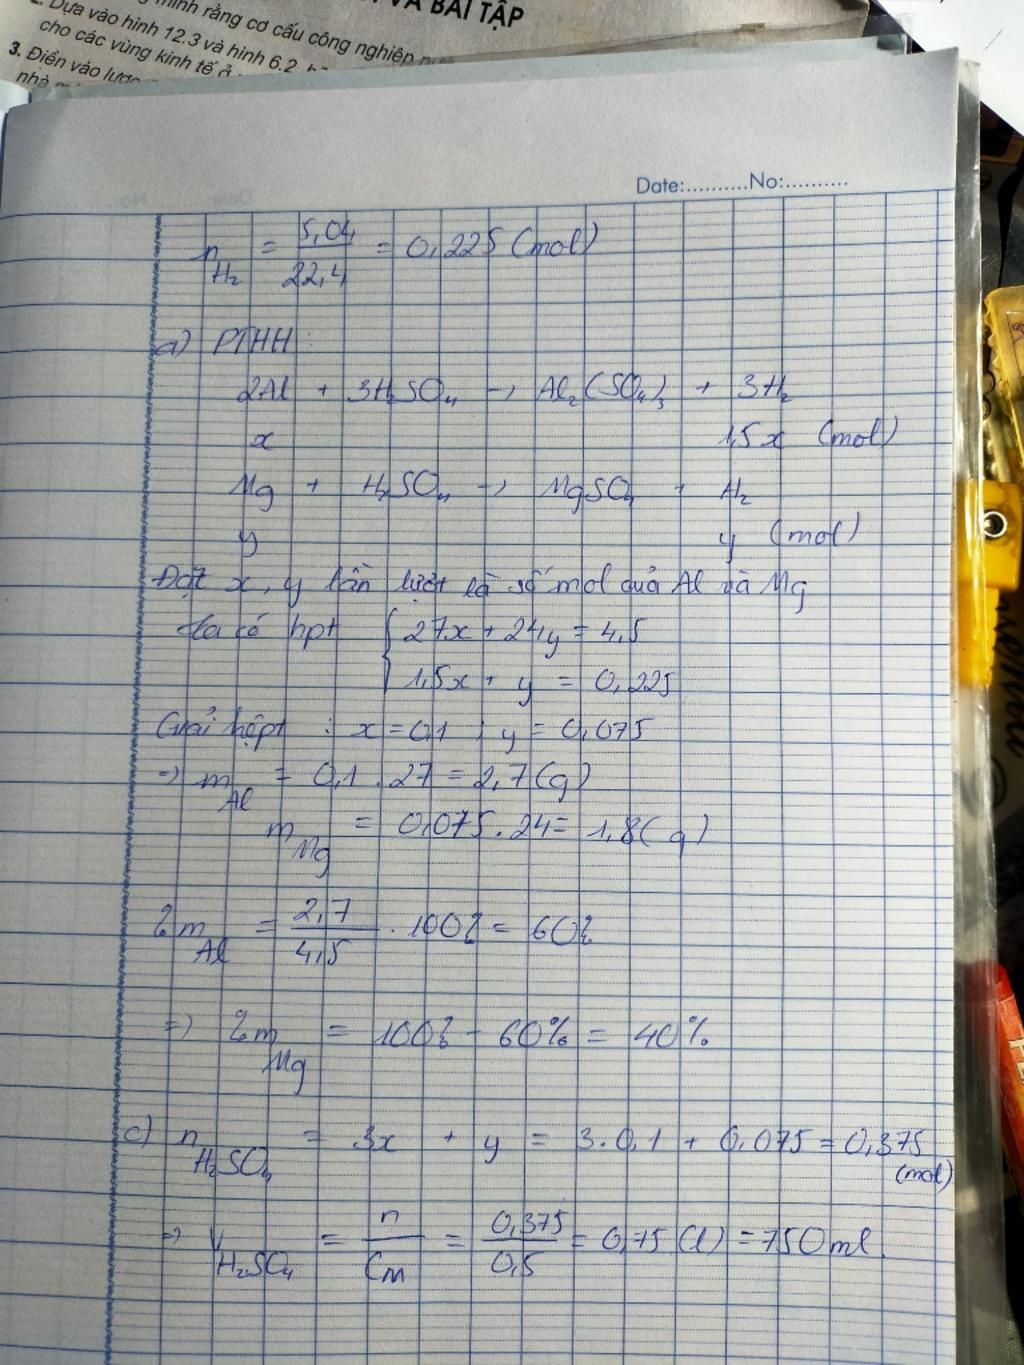 VÀ BÀI TẬP
minh rằng cơ cấu công nghiệp
2. Dựa vào hình 12.3 và hình 6.2
cho các vùng kinh tế ở
3. Điền vào lược
nhà
Date:..........No:..........
n H₂ = 5,04 / 22,4 = 0,225 (mol)
a) PTHH
2Al + 3H₂SO₄ → Al₂(SO₄)₃ + 3H₂
x 1,5x (mol)
Mg + H₂SO₄ → MgSO₄ + H₂
y y (mol)
Đặt x, y lần lượt là số mol quả Al và Mg
Ta có hpt { 27x + 24y = 4,5
1,5x + y = 0,225
Giải hệpt : x = 0,1 ; y = 0,075
=> m Al = 0,1 . 27 = 2,7 (g)
m Mg = 0,075 . 24 = 1,8 (g)
% m Al = 2,7 / 4,5 . 100% = 60%
=> % m Mg = 100% - 60% = 40%
c) n H₂SO₄ = 3x + y = 3.0,1 + 0,075 = 0,375 (mol)
=> V H₂SO₄ = n / CM = 0,375 / 0,5 = 0,75 (l) = 750ml.